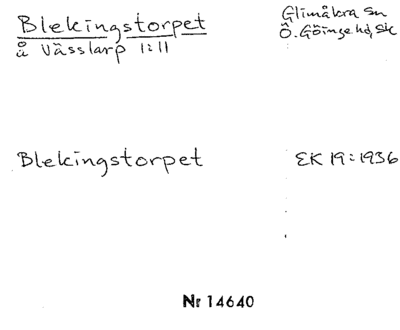 Blekingstorpet
å Vässlarp 1:11
Glimåkra sn
Ö. Göinge hd, Sk
Blekingstorpet
EK 19:1936
Nr 14640